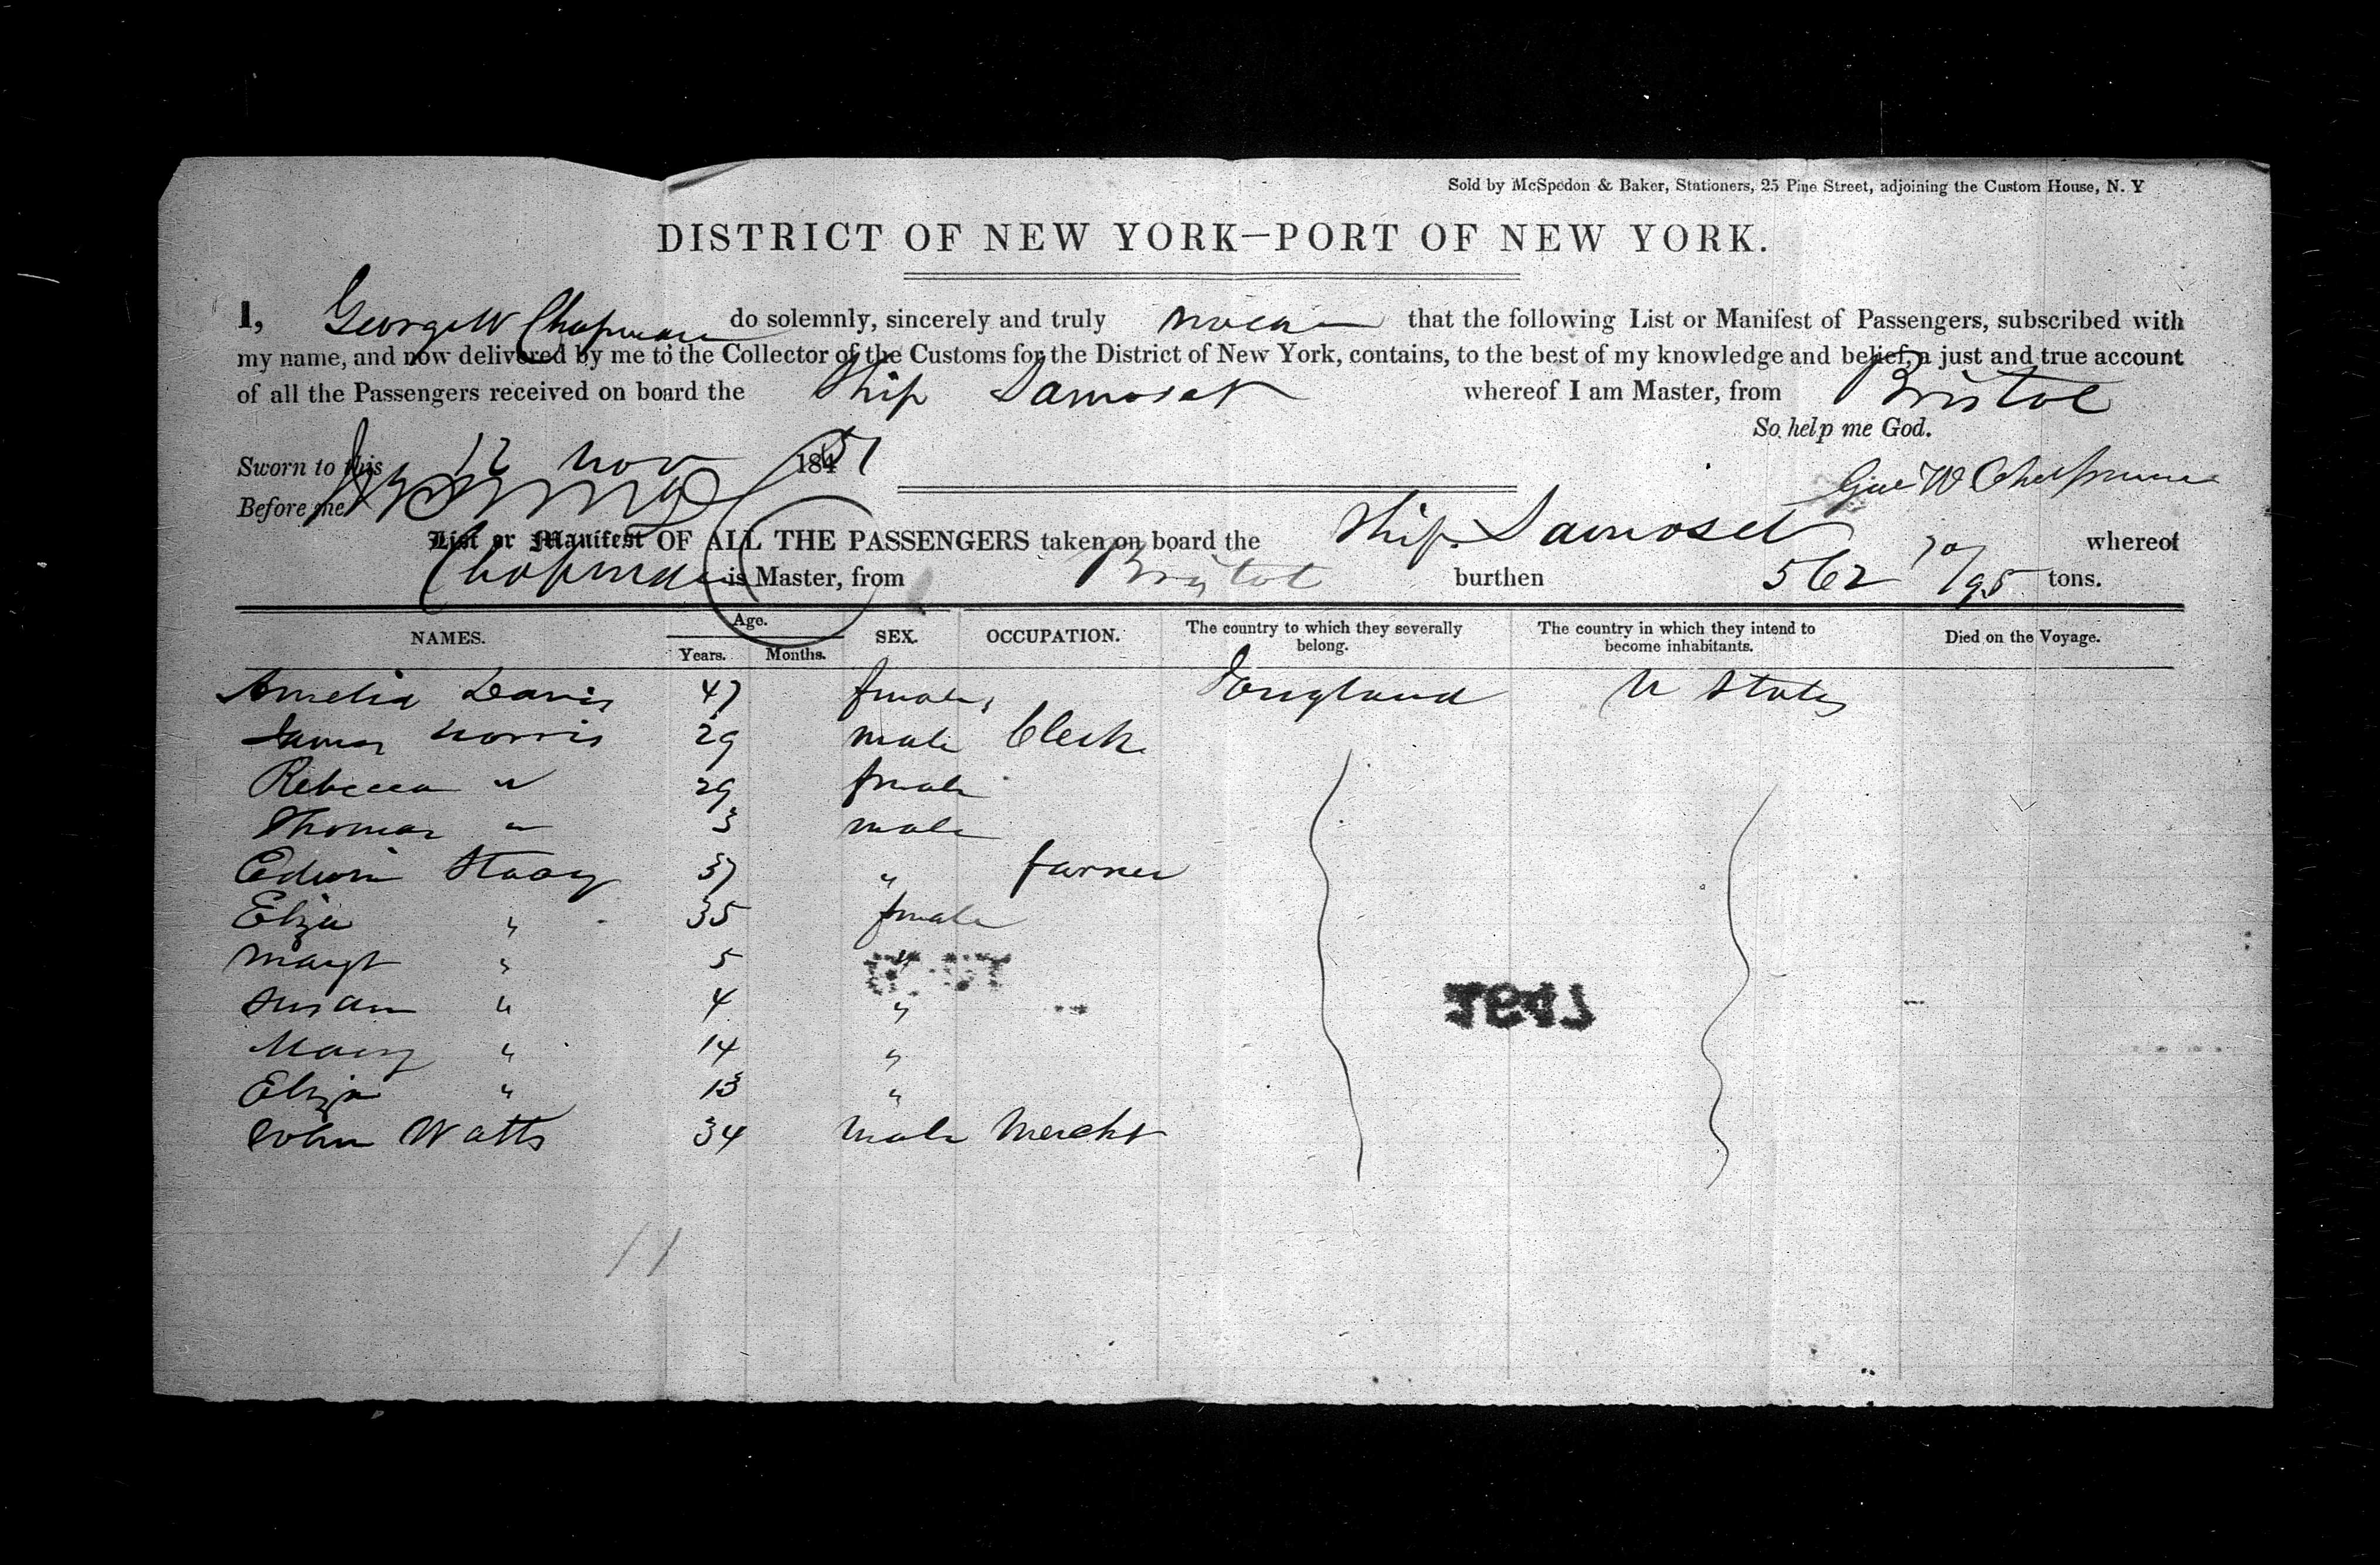 Sold by McSpedon & Baker, Stationers, 25 Pine Street, adjoining the Custom House, N. Y
DISTRICT OF NEW YORK—PORT OF NEW YORK.
I, George W Chapman do solemnly, sincerely and truly swear that the following List or Manifest of Passengers, subscribed with
my name, and now delivered by me to the Collector of the Customs for the District of New York, contains, to the best of my knowledge and belief, a just and true account
of all the Passengers received on board the Ship Samoset whereof I am Master, from Bristol
So help me God.
Sworn to this 12 Nov 1851
Geo W Chapman
Before me
List or Manifest OF ALL THE PASSENGERS taken on board the Ship Samoset whereof
Chapman is Master, from Bristol burthen 562 /95 tons.
NAMES. Age. Years. Months. SEX. OCCUPATION. The country to which they severally belong. The country in which they intend to become inhabitants. Died on the Voyage.
Amelia Davis 47 female England U States
James Norris 29 male Clerk
Rebecca " 29 female
Thomas " 3 male
Edwin 37 " farmer
Eliza " 35 female
Margt " 5 "
Susan " 4 "
Mary " 14 "
Eliza " 13 "
John Watts 34 male Mercht
11